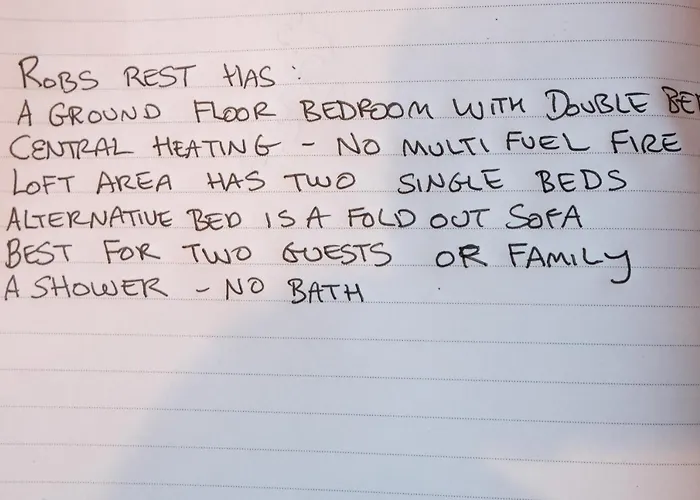 ROBS REST HAS :
A GROUND FLOOR BEDROOM WITH DOUBLE BE
CENTRAL HEATING - NO MULTI FUEL FIRE
LOFT AREA HAS TWO SINGLE BEDS
ALTERNATIVE BED IS A FOLD OUT SOFA
BEST FOR TWO GUESTS OR FAMILY
A SHOWER - NO BATH